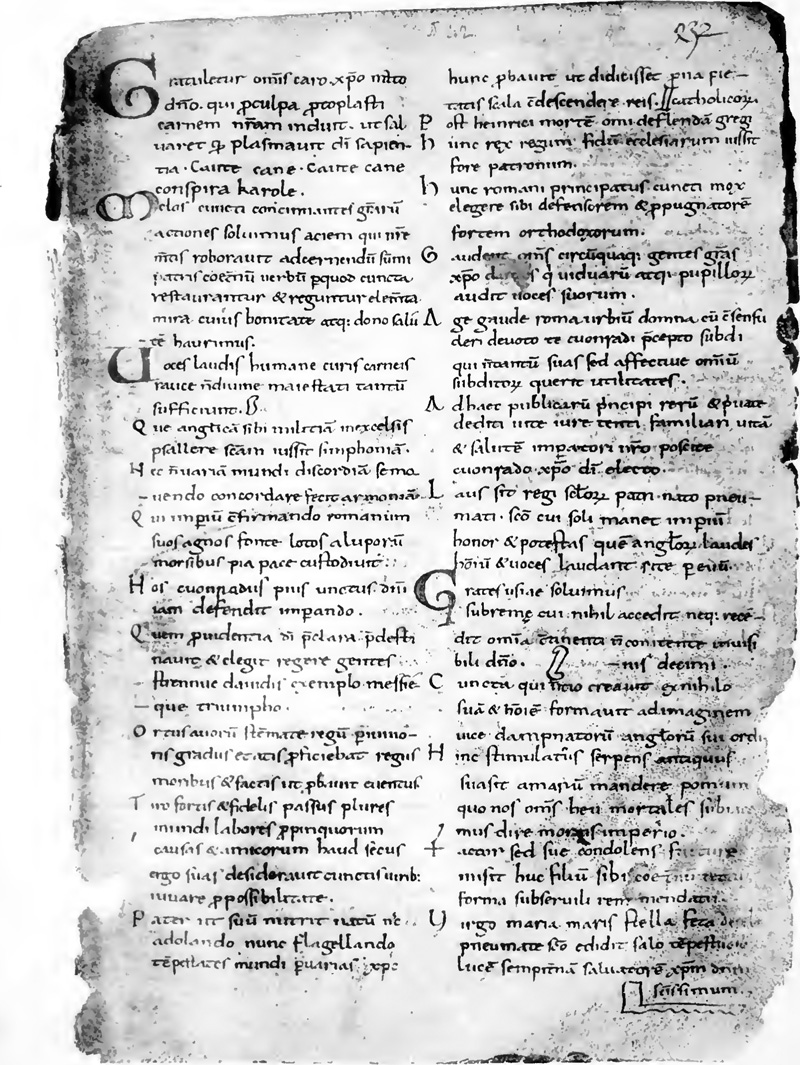 232
Gratuletur om̄is caro xp̄o nato
dn̄o. qui ꝓculpa ꝓtoplasti
carnem nr̄am induit. ut sal
uaret qđ plasmauit di sapien
tia. Caute cane. Caute cane
conspira karole.
Melos cuncti concinnantes gr̄arū
actiones soluimus aciem qui nr̄e
m̄tis roborauit adcernendū sūmi
patris coet̄nū uerbū ꝑquod cuncta
restaurantur & reguntur elem̄ta
mira cuius bonitate atq; dono salu
tē haurimus.
Uoces laudis humane curis carneis
rauce n̄diuine maiestati tantū
sufficiunt.
Que anglicā sibi militiā inexcelsis
psallere sc̄am iussit simphoniā.
Hec n̄uariā mundi discordiā semo
uendo concordare fecit armoniā.
Qui imp̄iū c̄firmando romanum
suos agnos fonte lotos a luporū
morsibus pia pace custodiuit.
Hos cuonradus pius unctus dn̄i
iam defendit imꝑando.
Quem ꝓuidentia di p̄clara p̄desti
nauit & elegit regere gentes
strennue dauidis exemplo messie
que triumpho.
Ortus auorū stēmate regū ꝑiunio
ris gradus etatis ꝓficiebat regius
moribus & factis ut ꝓbauit euentus
Tiro fortis & fidelis passus plures
mundi labores ꝓpinquorum
causas & amicorum haud secus
ergo suas desiderauit cunctis uirib;
iuuare ꝓpossibilitate.
Pater ut suū nutrit natū
adolando nunc flagellando
tēpestates mundi ꝑuarias xp̄c
hunc ꝓbauit ut didicisset ꝓna pie
tatis scala c̄descendere reis. catholicoꝝ
Post heinrici mortē omi deflendā gregi
hunc rex regum fidū ecclesiarum iussit
fore patronum.
hunc romani principatus cuncti mox
elegere sibi defensorem & ꝓpugnatorē
fortem orthodoxorum.
Gaudent om̄s circūquaq; gentes gr̄as
xp̄o q uiduarū atq; pupilloꝝ
audit uoces suorum.
Age gaude roma urbiū domna cū c̄sensu
cleri deuoto te cuonradi p̄cepto subdi
qui n̄tantū suas sed affectiue om̄iū
subditoꝝ querit utilitates.
Adhaec publicarū p̄ncipi rerū & p̄uate
dediti uite iure tenti familiari uitā
& salutē imp̄atori nr̄o poscite
cuonrado xp̄o di electo.
Laus sit regi scl̄oꝝ patri nato pneu
mati sc̄o cui soli manet imp̄iū
honor & potestas quē angl̄oꝝ laudes
hoīū & uoces laudant rite ꝑ euū.
Grates usiae soluimus
supreme cui nihil accedit neq; rece
dit omīa c̄tinenti n̄ contente inuisi
bili dn̄o. nis decimi.
Cuncta qui uerbo creauit ex nihilo
suā & hoīē formauit adimaginem
uice dampnatorū angl̄orū sui ordi
Hinc stimulatus serpens antiquus
suasit amarū mandere pomum
quo nos om̄s heu mortales
mus dire mortis imperio.
actor sed sue condolens
misit huc filiū sibi
forma subseruili
Virgo maria maris stella feta
pneumate sc̄o edidit salo
lucē sempit̄nā saluatorē xp̄m
scissimum.